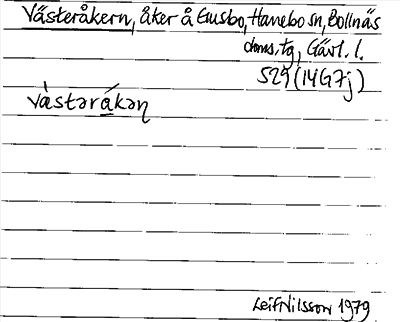 Västeråkern, åker å Gusbo, Hanebo sn, Bollnäs
doms. tg, Gävl. l.
S29 (14G7j)
vàstəråkən
Leif Nilsson 1979